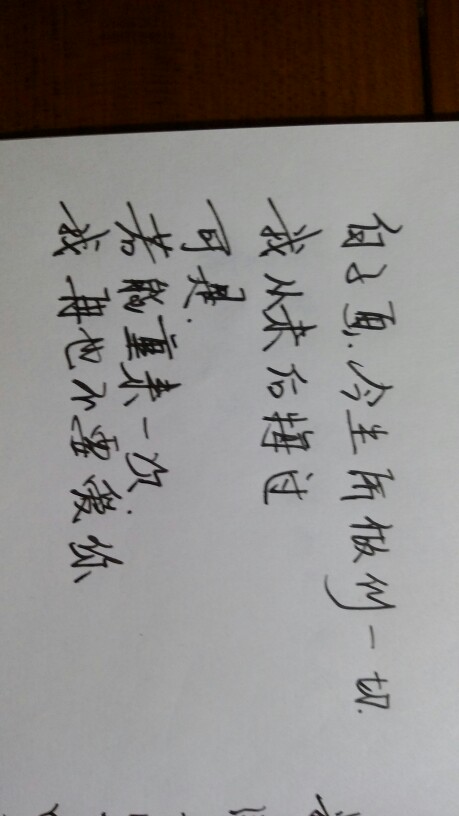 白子画.今生所做的一切.
我从未后悔过
可是.
若能重来一次.
我再也不要爱你